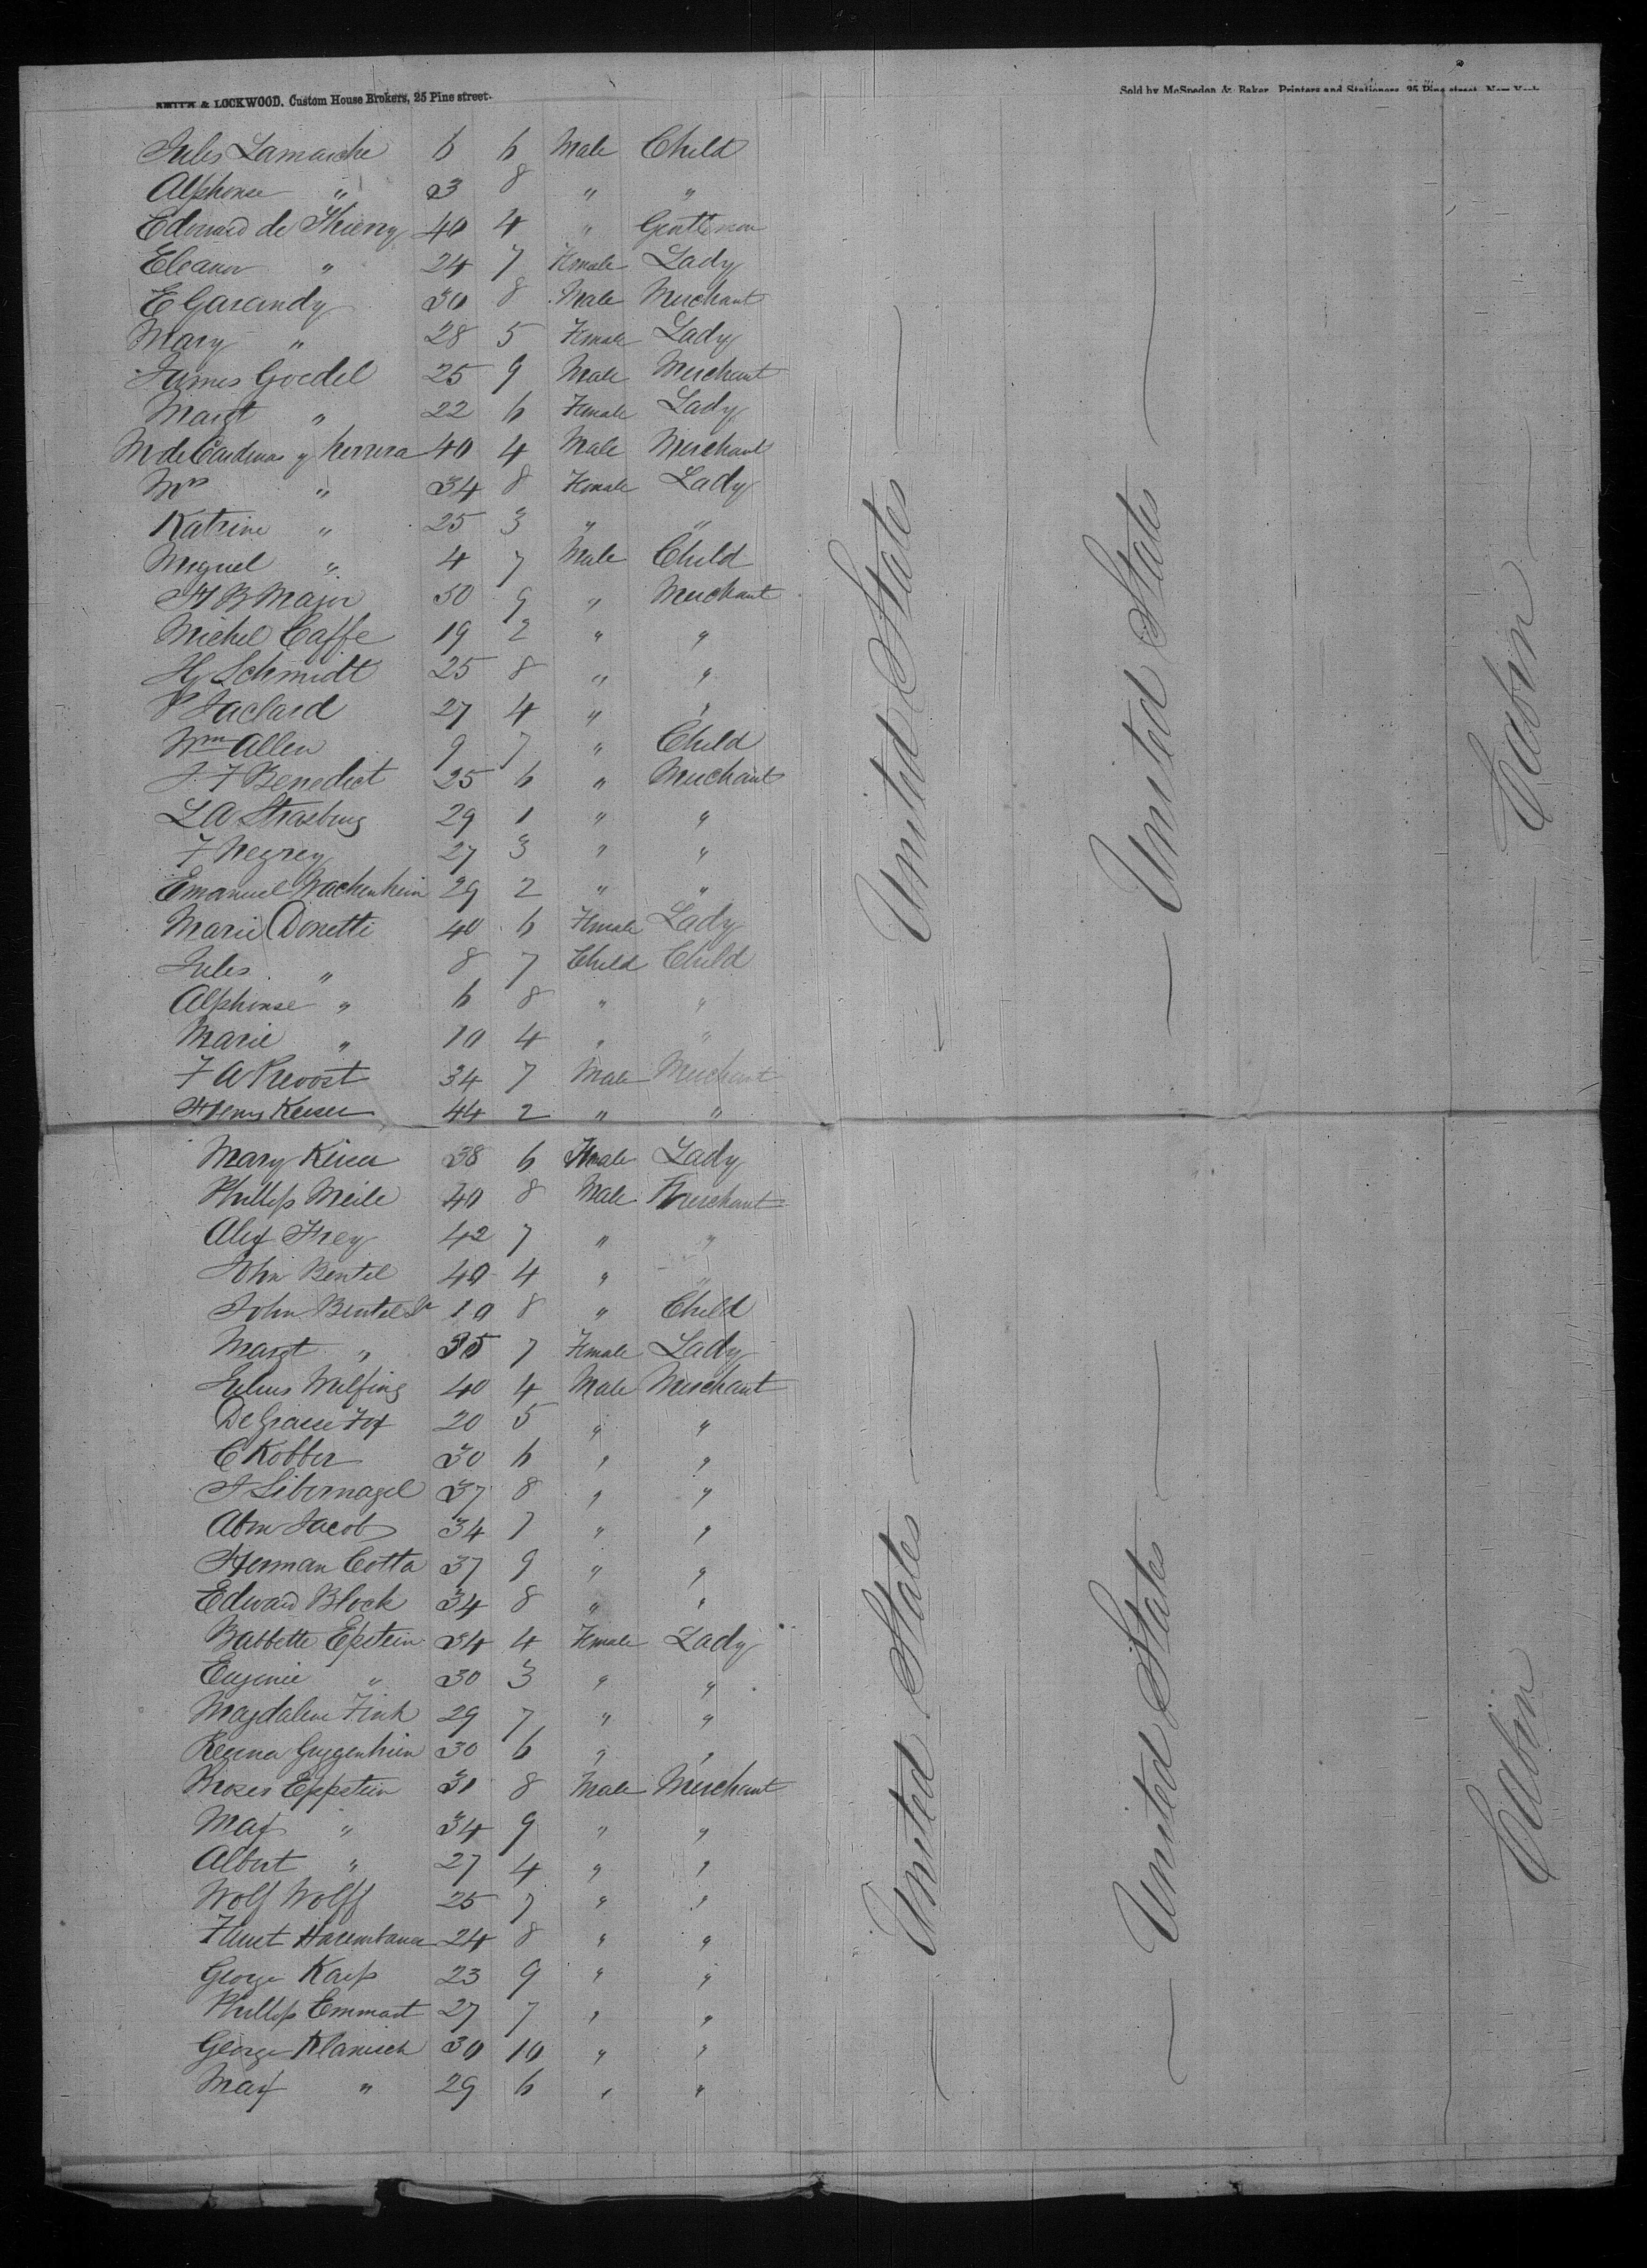 SMITH & LOCKWOOD, Custom House Brokers, 25 Pine street.
Sold by McSpedon & Baker, Printers and Stationers, 25 Pine street, New York
Jules Lamarche 6 6 Male Child
Alphonse " 3 8 " "
Edouard de Thierry 40 4 " Gentleman
Eleanor " 24 7 Female Lady
E Garandy 30 8 Male Merchant
Mary " 28 5 Female Lady
James Goedel 25 9 Male Merchant
Margt " 22 6 Female Lady
M de Cardenas y Herrera 40 4 Male Merchant
Mrs " 34 8 Female Lady
Katrine " 25 3 " "
Miguel " 4 7 Male Child
H B Major 50 9 " Merchant
Michel Caffe 19 2 " "
Hy Schmidt 25 8 " "
P Jaclard 27 4 " "
Wm Allen 9 7 " Child
J. F Benedict 25 6 " Merchant
L A Strasburg 29 1 " "
F Negrey 27 3 " "
Emanuel Wachenheim 29 2 " "
Marie Donetti 40 6 Female Lady
Jules " 8 7 Child Child
Alphonse " 6 8 " "
Marie " 10 4 " "
F A Prevost 34 7 Male Merchant
Henry Keiser 44 2 " "
Mary Keiser 38 6 Female Lady
Phillip Meile 40 8 Male Merchant
Alex Frey 42 7 " "
John Bentel 40 4 " "
John Bentel Jr 10 8 " Child
Margt " 35 7 Female Lady
Julius Wilfing 40 4 Male Merchant
De Grasse Fox 20 5 " "
C Kobber 30 6 " "
J Libernagel 37 8 " "
Abm Jacob 34 7 " "
Herman Cotta 37 9 " "
Edward Block 34 8 " "
Babbette Epstein 34 4 Female Lady
Eugenie " 30 3 " "
Magdalene Fink 29 7 " "
Regina Guggenheim 30 6 " "
Moses Eppstein 31 8 Male Merchant
Max " 34 9 " "
Albert " 27 4 " "
Wolf Wolff 25 7 " "
24 8 " "
George Karp 23 9 " "
Phillip Emmart 27 7 " "
George Klanisch 30 10 " "
Max " 29 6 " "
United States
United States
Cabin
United States
United States
Cabin